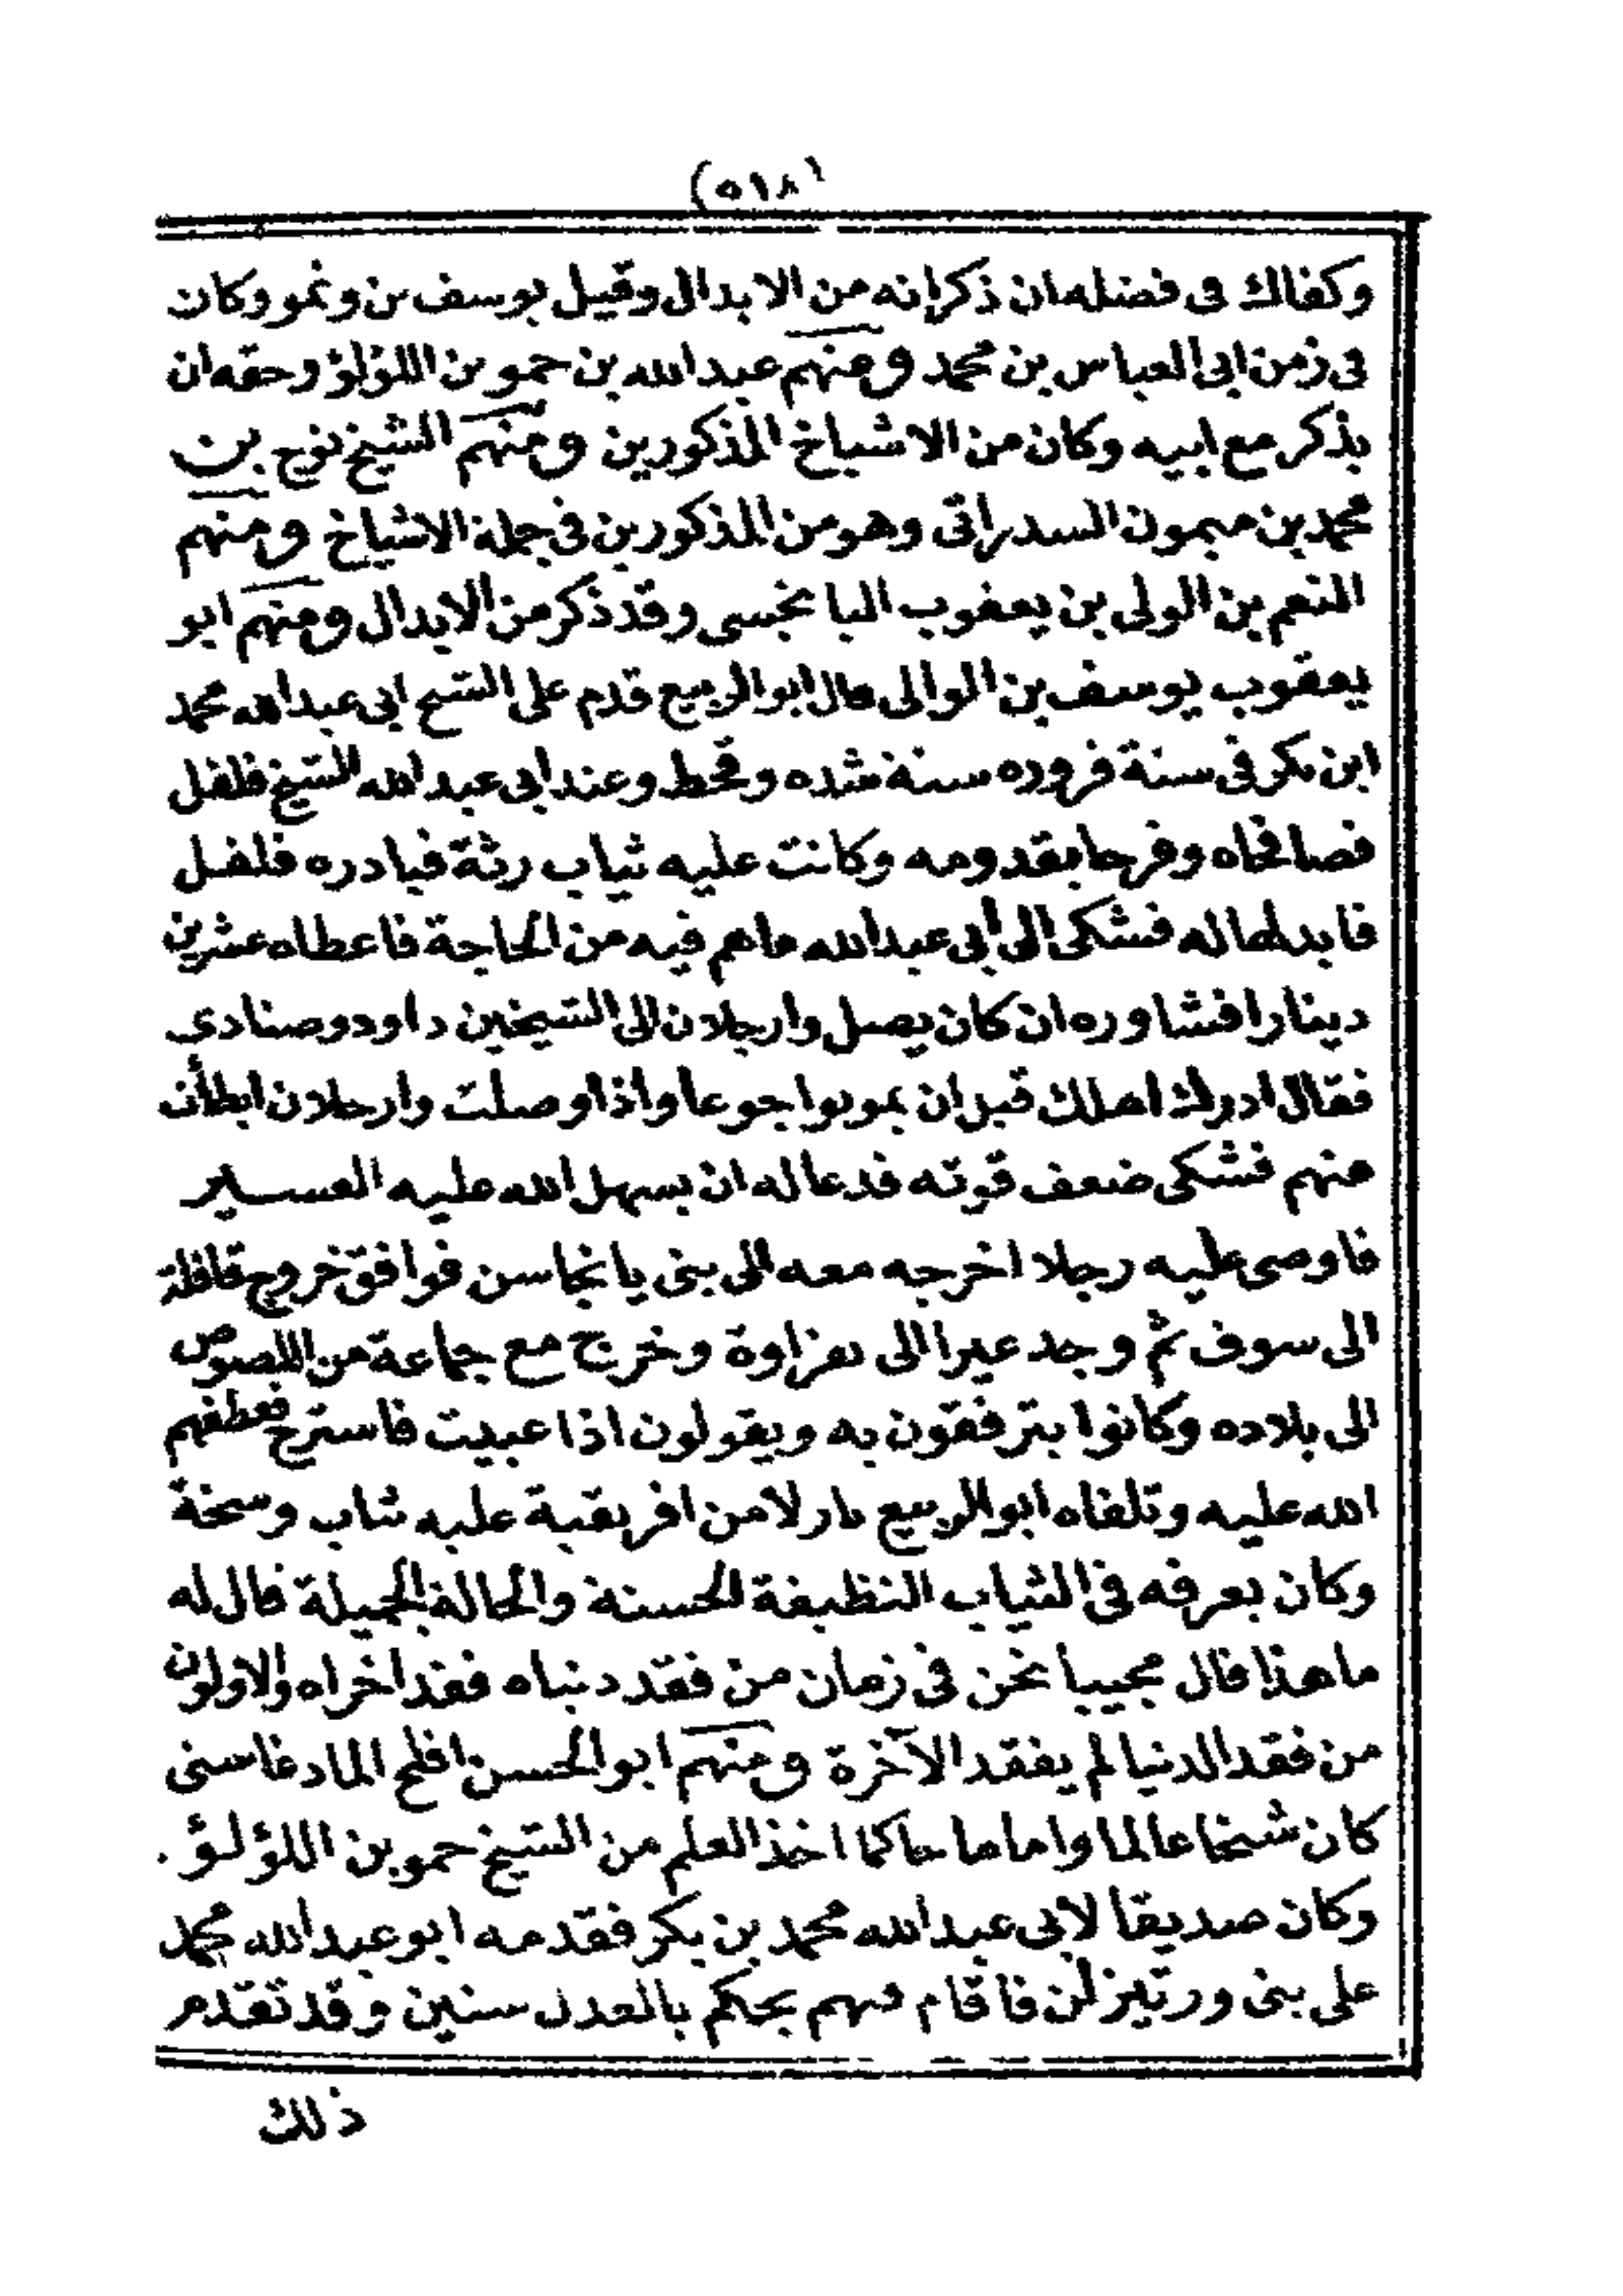 (٥١٨)
وكفاك فى فضله ان ذكر انه من الابدال وقيل يوسف بن ونمو وكان
فى زمن ابى العباس بن محمد ومنهم عبد الله بن حمو بن اللؤلؤ وحقه ان
يذكر مع ابيه وكان من الاشياخ المذكورين ومنهم الشيخ نوح بن
محمد بن ميمون السدراتى وهو من المذكورين فى جملة الاشياخ ومنهم
النعم بن الولى بن يعقوب وقد ذكر من الابدال ومنهم ابو
يعقوب يوسف بن الوالى قال ابو الربيع قدم على الشيخ ابى عبد الله محمد
ابن بكر فى سنة فروره سنة شده وقحط وعند ابى عبد الله الشيخ فلفل
فصافحاه وفرحا بقدومه وكانت عليه ثياب رثة فبادره فلفل
فابدلها له فشكى الى ابى عبد الله ما هم فيه من الحاجة فاعطاه عشرين
دينارا فشاوره ان كان يصل وارجلان الى الشيخين داود وصنادى
فقال ادرك اهلك قبل ان يموتوا جوعا واذا وصلت وارجلان ابطأت
عنهم فشكى ضعف قوته فدعا له ان يسهل الله عليه العسير
فاوصى عليه رجلا اخرجه معه الى بنى يانجاسن فوافق خروج قافلة
الى سوف ثم وجد عيرا الى نفزاوة وخرج مع جماعة من اللصوص
الى بلاده وكانوا يترفقون به ويقولون اذا عييت فاسترح فعطفهم
الله عليه وتلقاه ابو الربيع نازلا من افريقية عليه ثياب وسخة
وكان يعرفه فى الثياب النظيفة الحسنة والحالة الجميلة قال له
ما هذا قال مجيبا نحن فى زمان من فقد دنياه فقد اخراه والاولون
من فقد الدنيا لم يفقد الآخرة ومنهم ابو الحسن افلح المادغاسنى
كان شيخا عالما واماما حاكما اخذ العلم من الشيخ حمو بن اللؤلؤ .
وكان صديقا لابى عبد الله محمد بن بكر فقدمه ابو عبد الله محمد
على بنى ورتيزلن فاقام فيهم يحكم بالعدل سنين وقد تقدم
ذلك